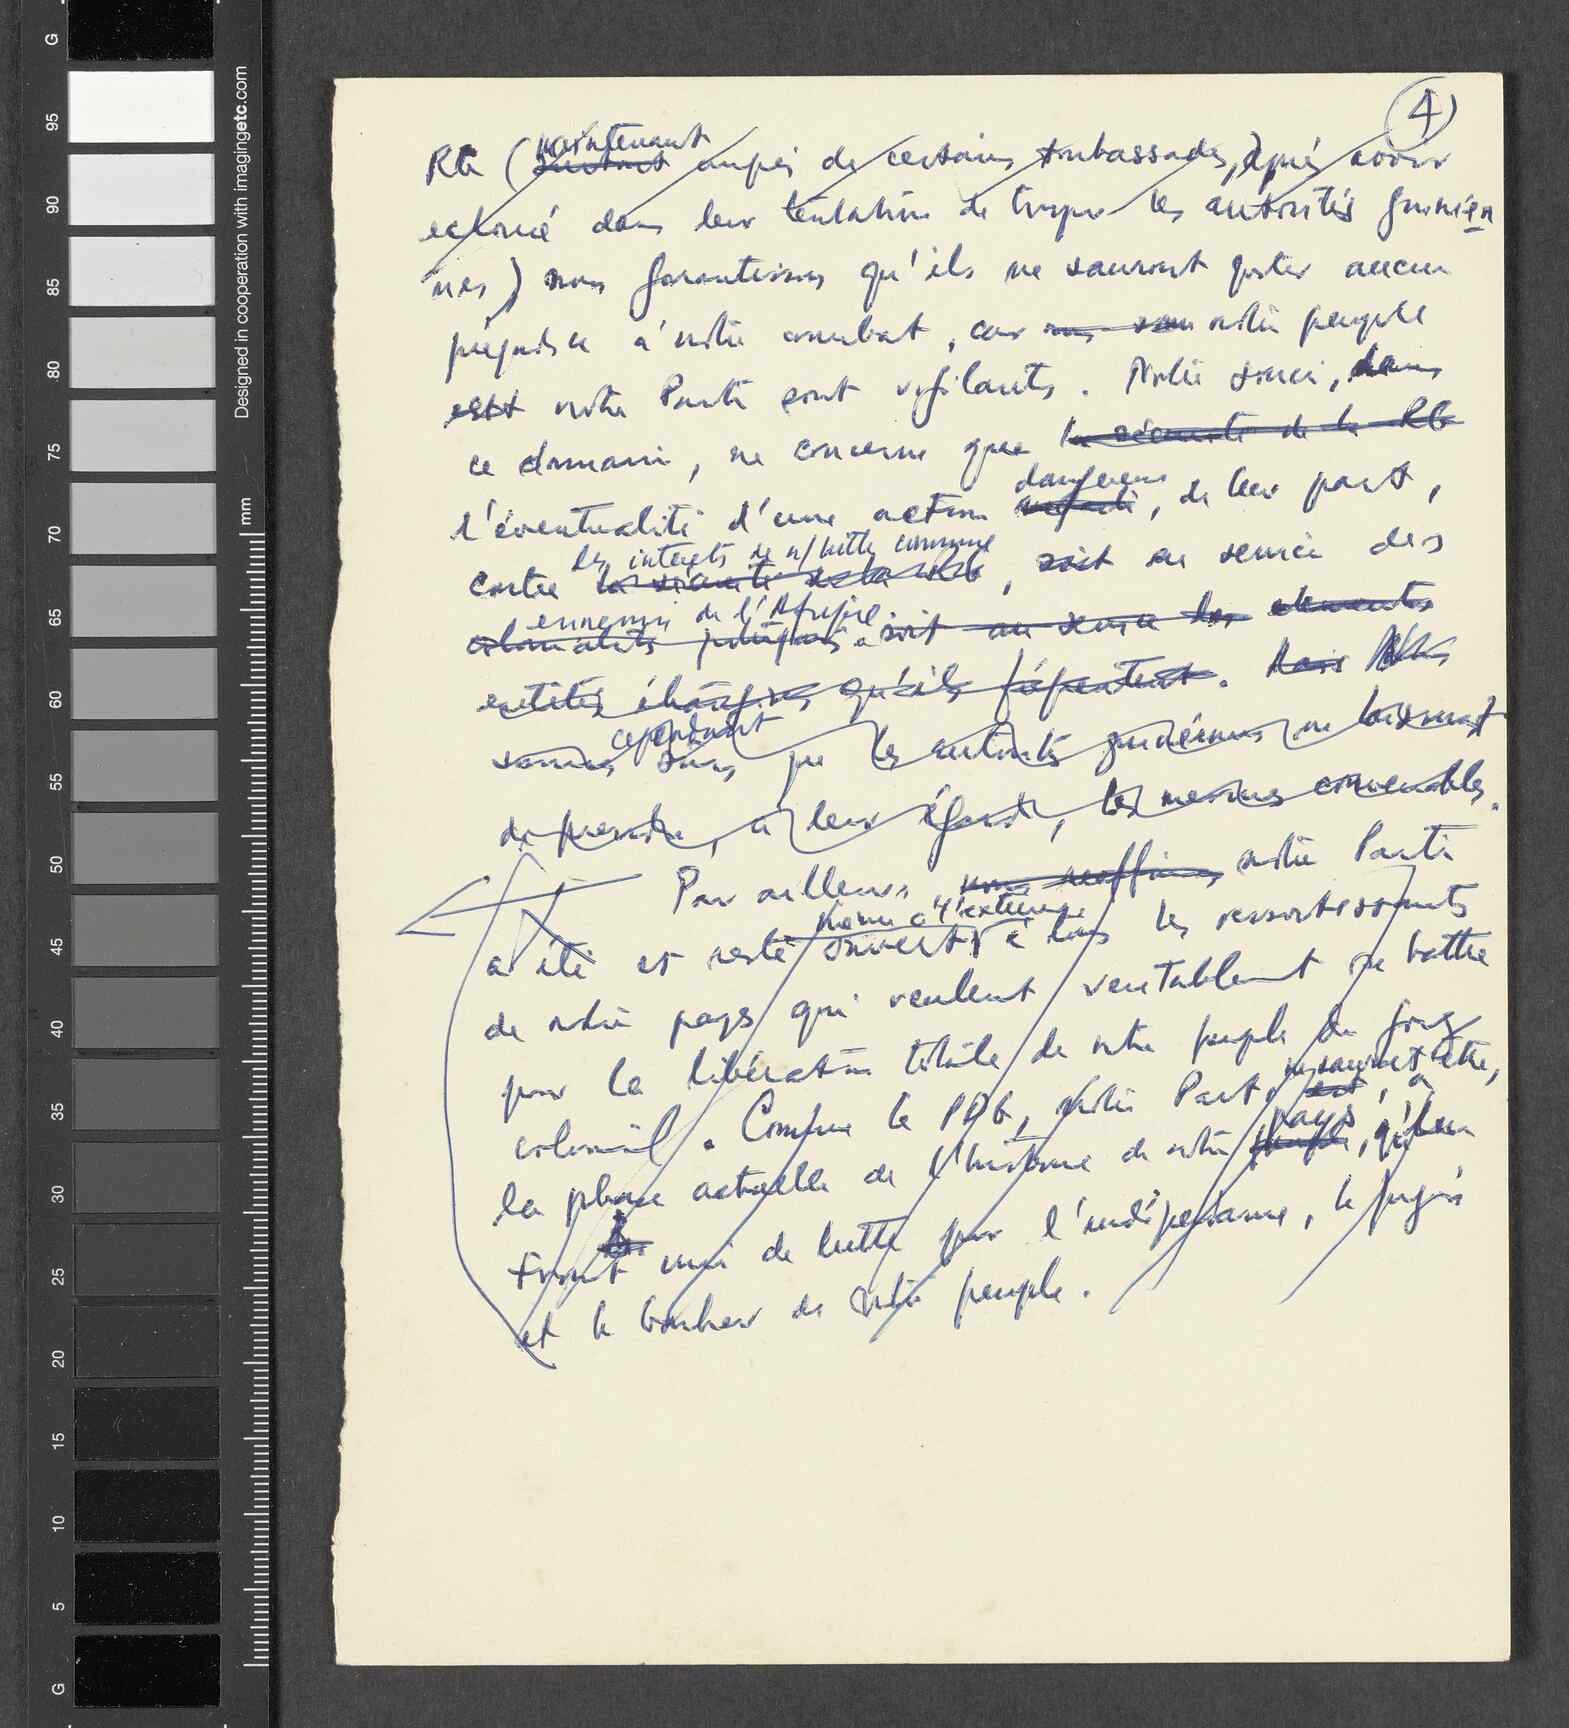 4
RG (maintenant
surtout auprès de certains Ambassades, après avoir
échoué dans leur tentative de tromper les autorités guinéen
nes) nous garantissons qu'ils ne sauront porter aucun
préjudice à notre combat, car notre peuple
est notre Parti sont vigilants. Notre souci, dans
ce domaine, ne concerne que la sécurité de la RG
dangereuse
l'éventualité d'une action, de leur part,
les intérêts de n/ lutte commune
contre la sécurité de la RG, soit au service des
ennemis de l'Afrique.
colonialistes portugais soit au service des éléments
entités étrangères qu'ils fréquentent. Mais Nous
cependant
sommes sûrs que les autorités guinéennes ne laisseront
de prendre, à leur égard, les mesures convenables.
Par ailleurs, nous notre Parti
même à l'extérieur
a été et reste ouvert à tous les ressortissants
de notre pays qui veulent véritablement se battre
pour la libération totale de notre peuple du joug
ne saurait être,
colonial. Comme le PDG, notre Parti est, à
pays
la phase actuelle de l'histoire de notre peuple, qu'un
Front uni de lutte pour l'indépendance, le progrès
et le bonheur de notre peuple.
Designed in cooperation with imagingetc.com
mm
G
95
90
85
80
75
70
65
60
55
50
45
40
35
30
25
20
15
10
5
G